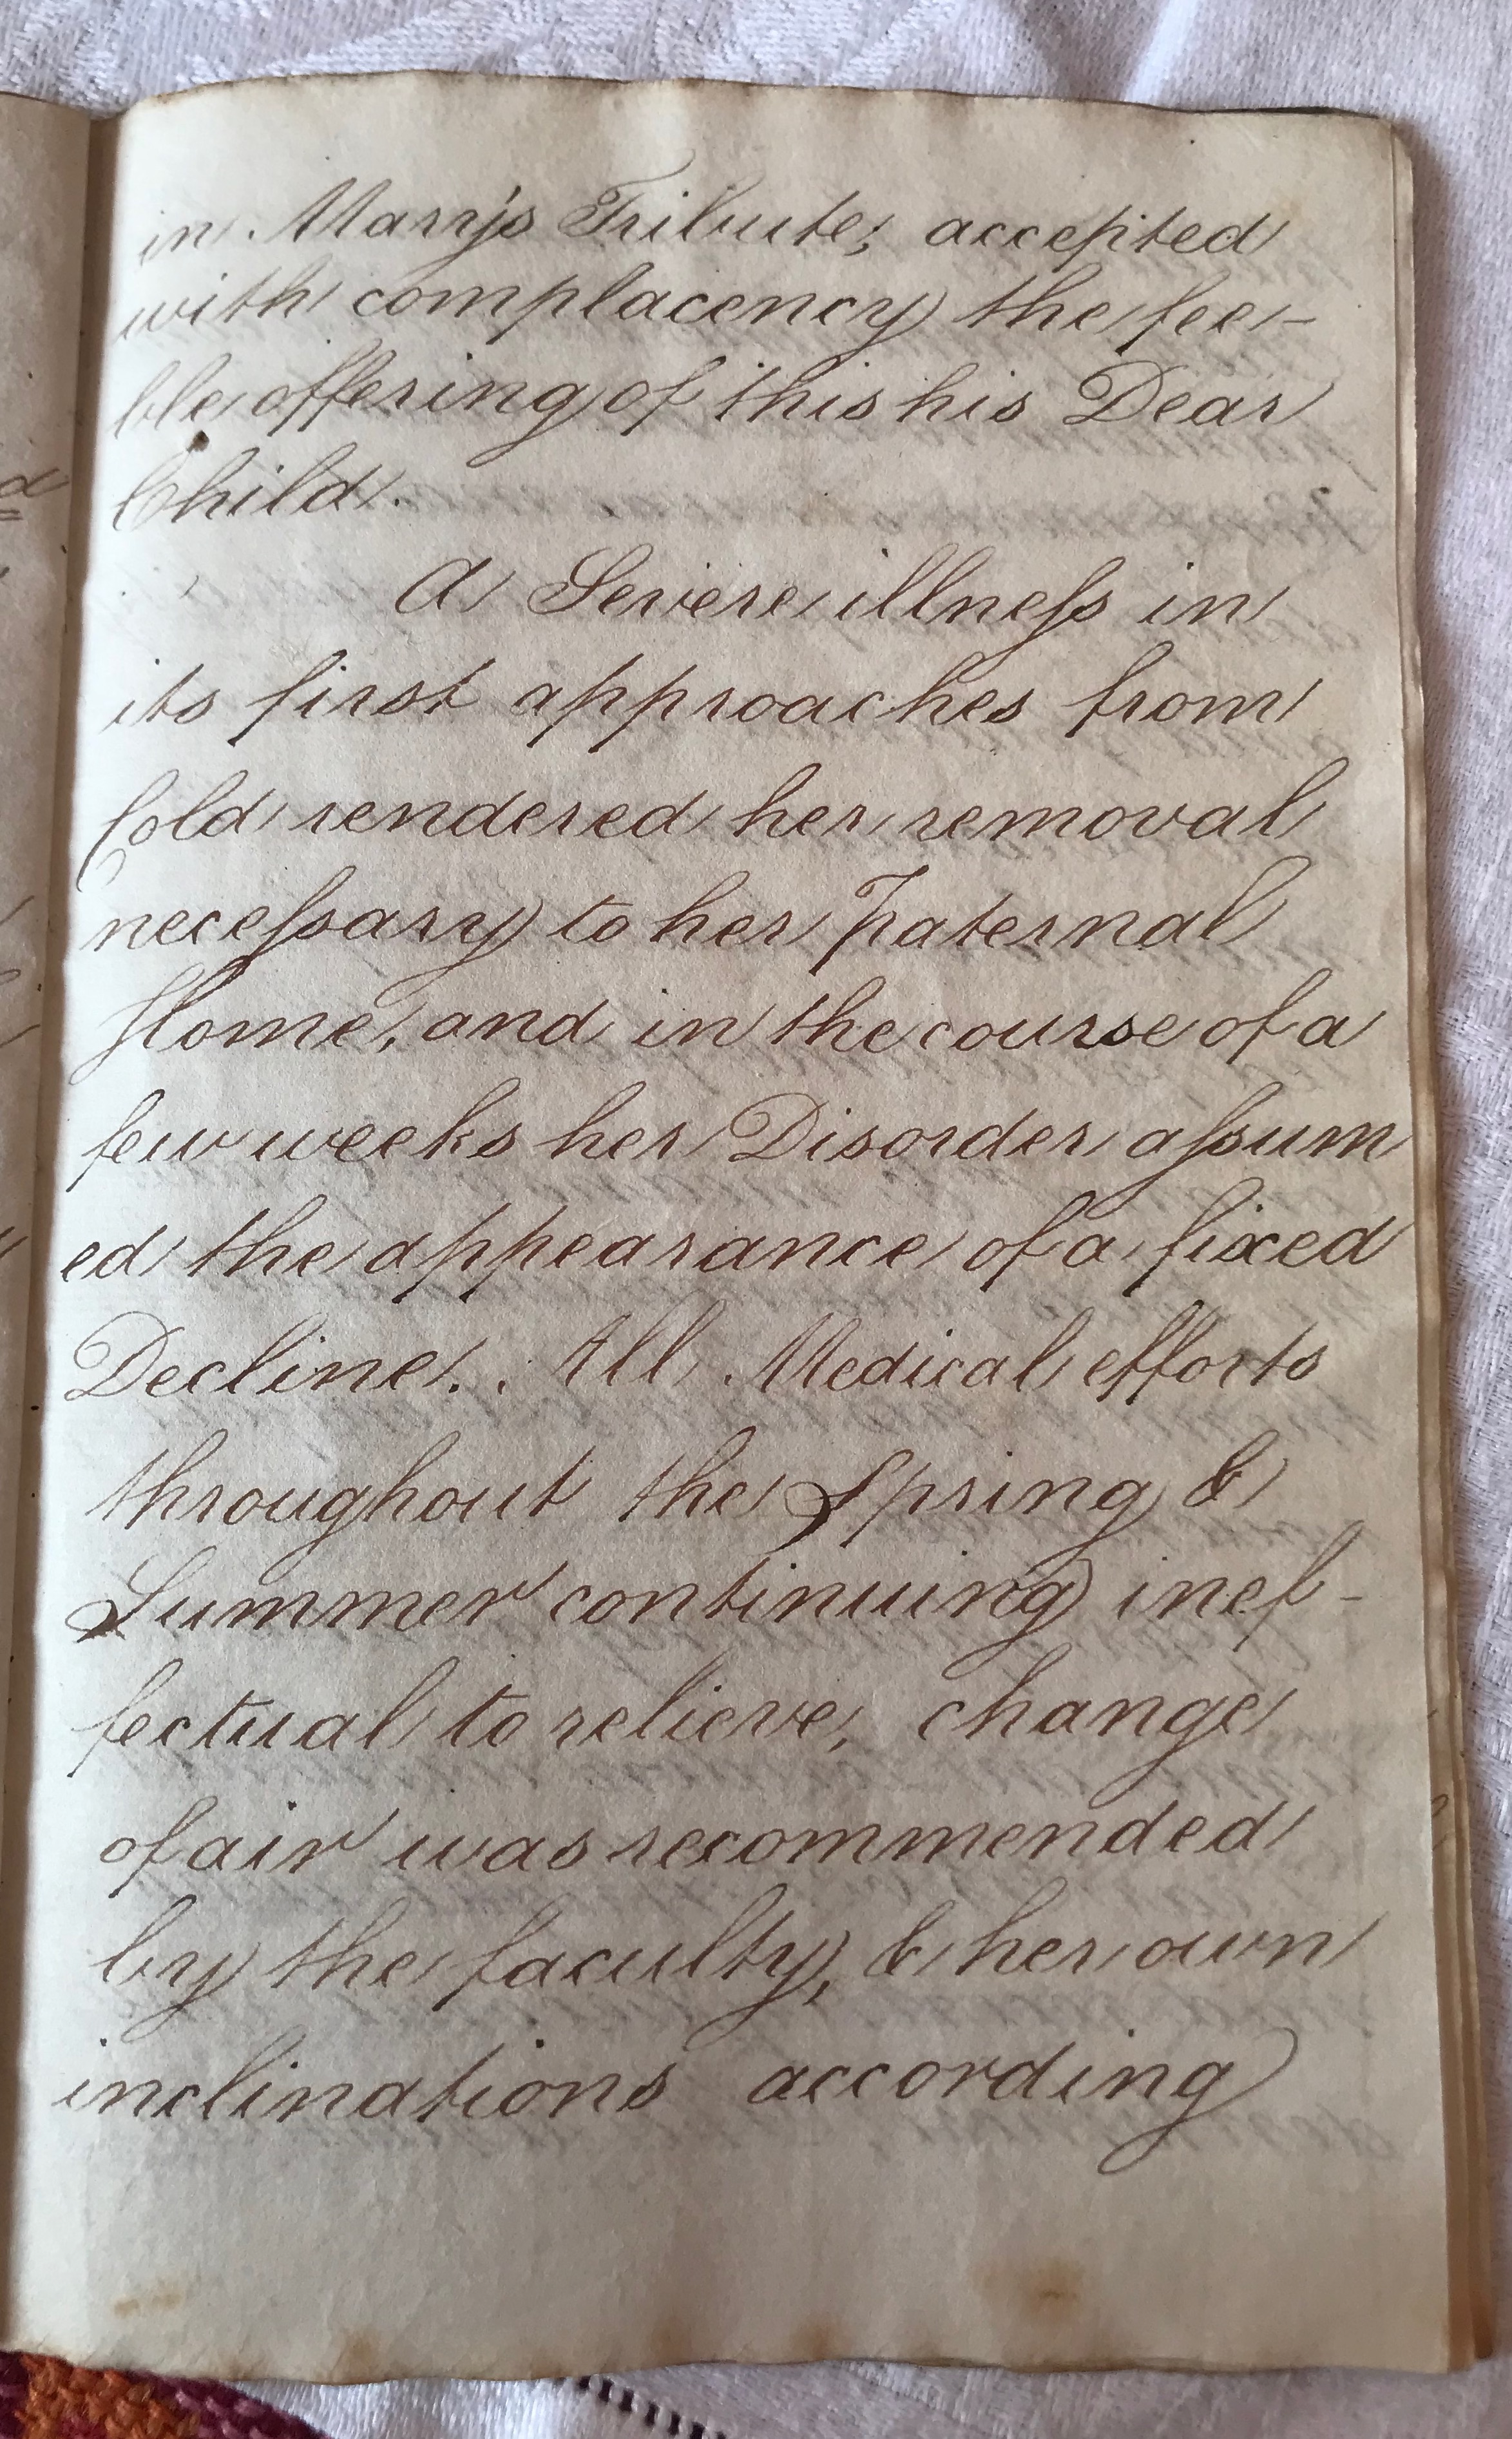 in Mary's Tribute, accepted
with complacency the fee-
ble offering of this his Dear
Child.
A Severe illneſs in
its first approaches from
Cold rendered her removal
neceſsary to her Paternal
Home, and in the course of a
few weeks her Disorder aſsum
ed the appearance of a fixed
Decline. . All Medical efforts
throughout the Spring &
Summer continuing inef-
fectual to relieve, change
of air was recommended
by the faculty, & her own
inclinations according
d